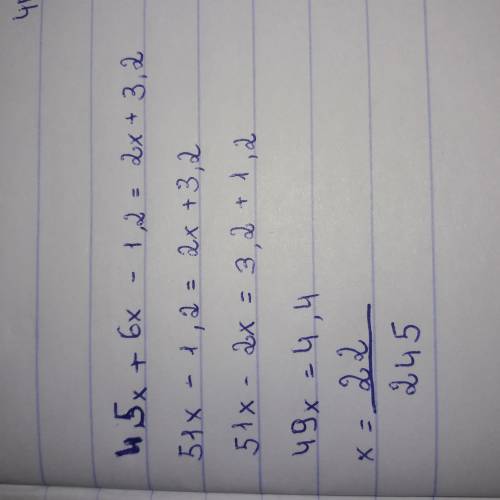 4,5x + 6x - 1,2 = 2x + 3,2
51x - 1,2 = 2x + 3,2
51x - 2x = 3,2 + 1,2
49x = 4,4
x = 22
245